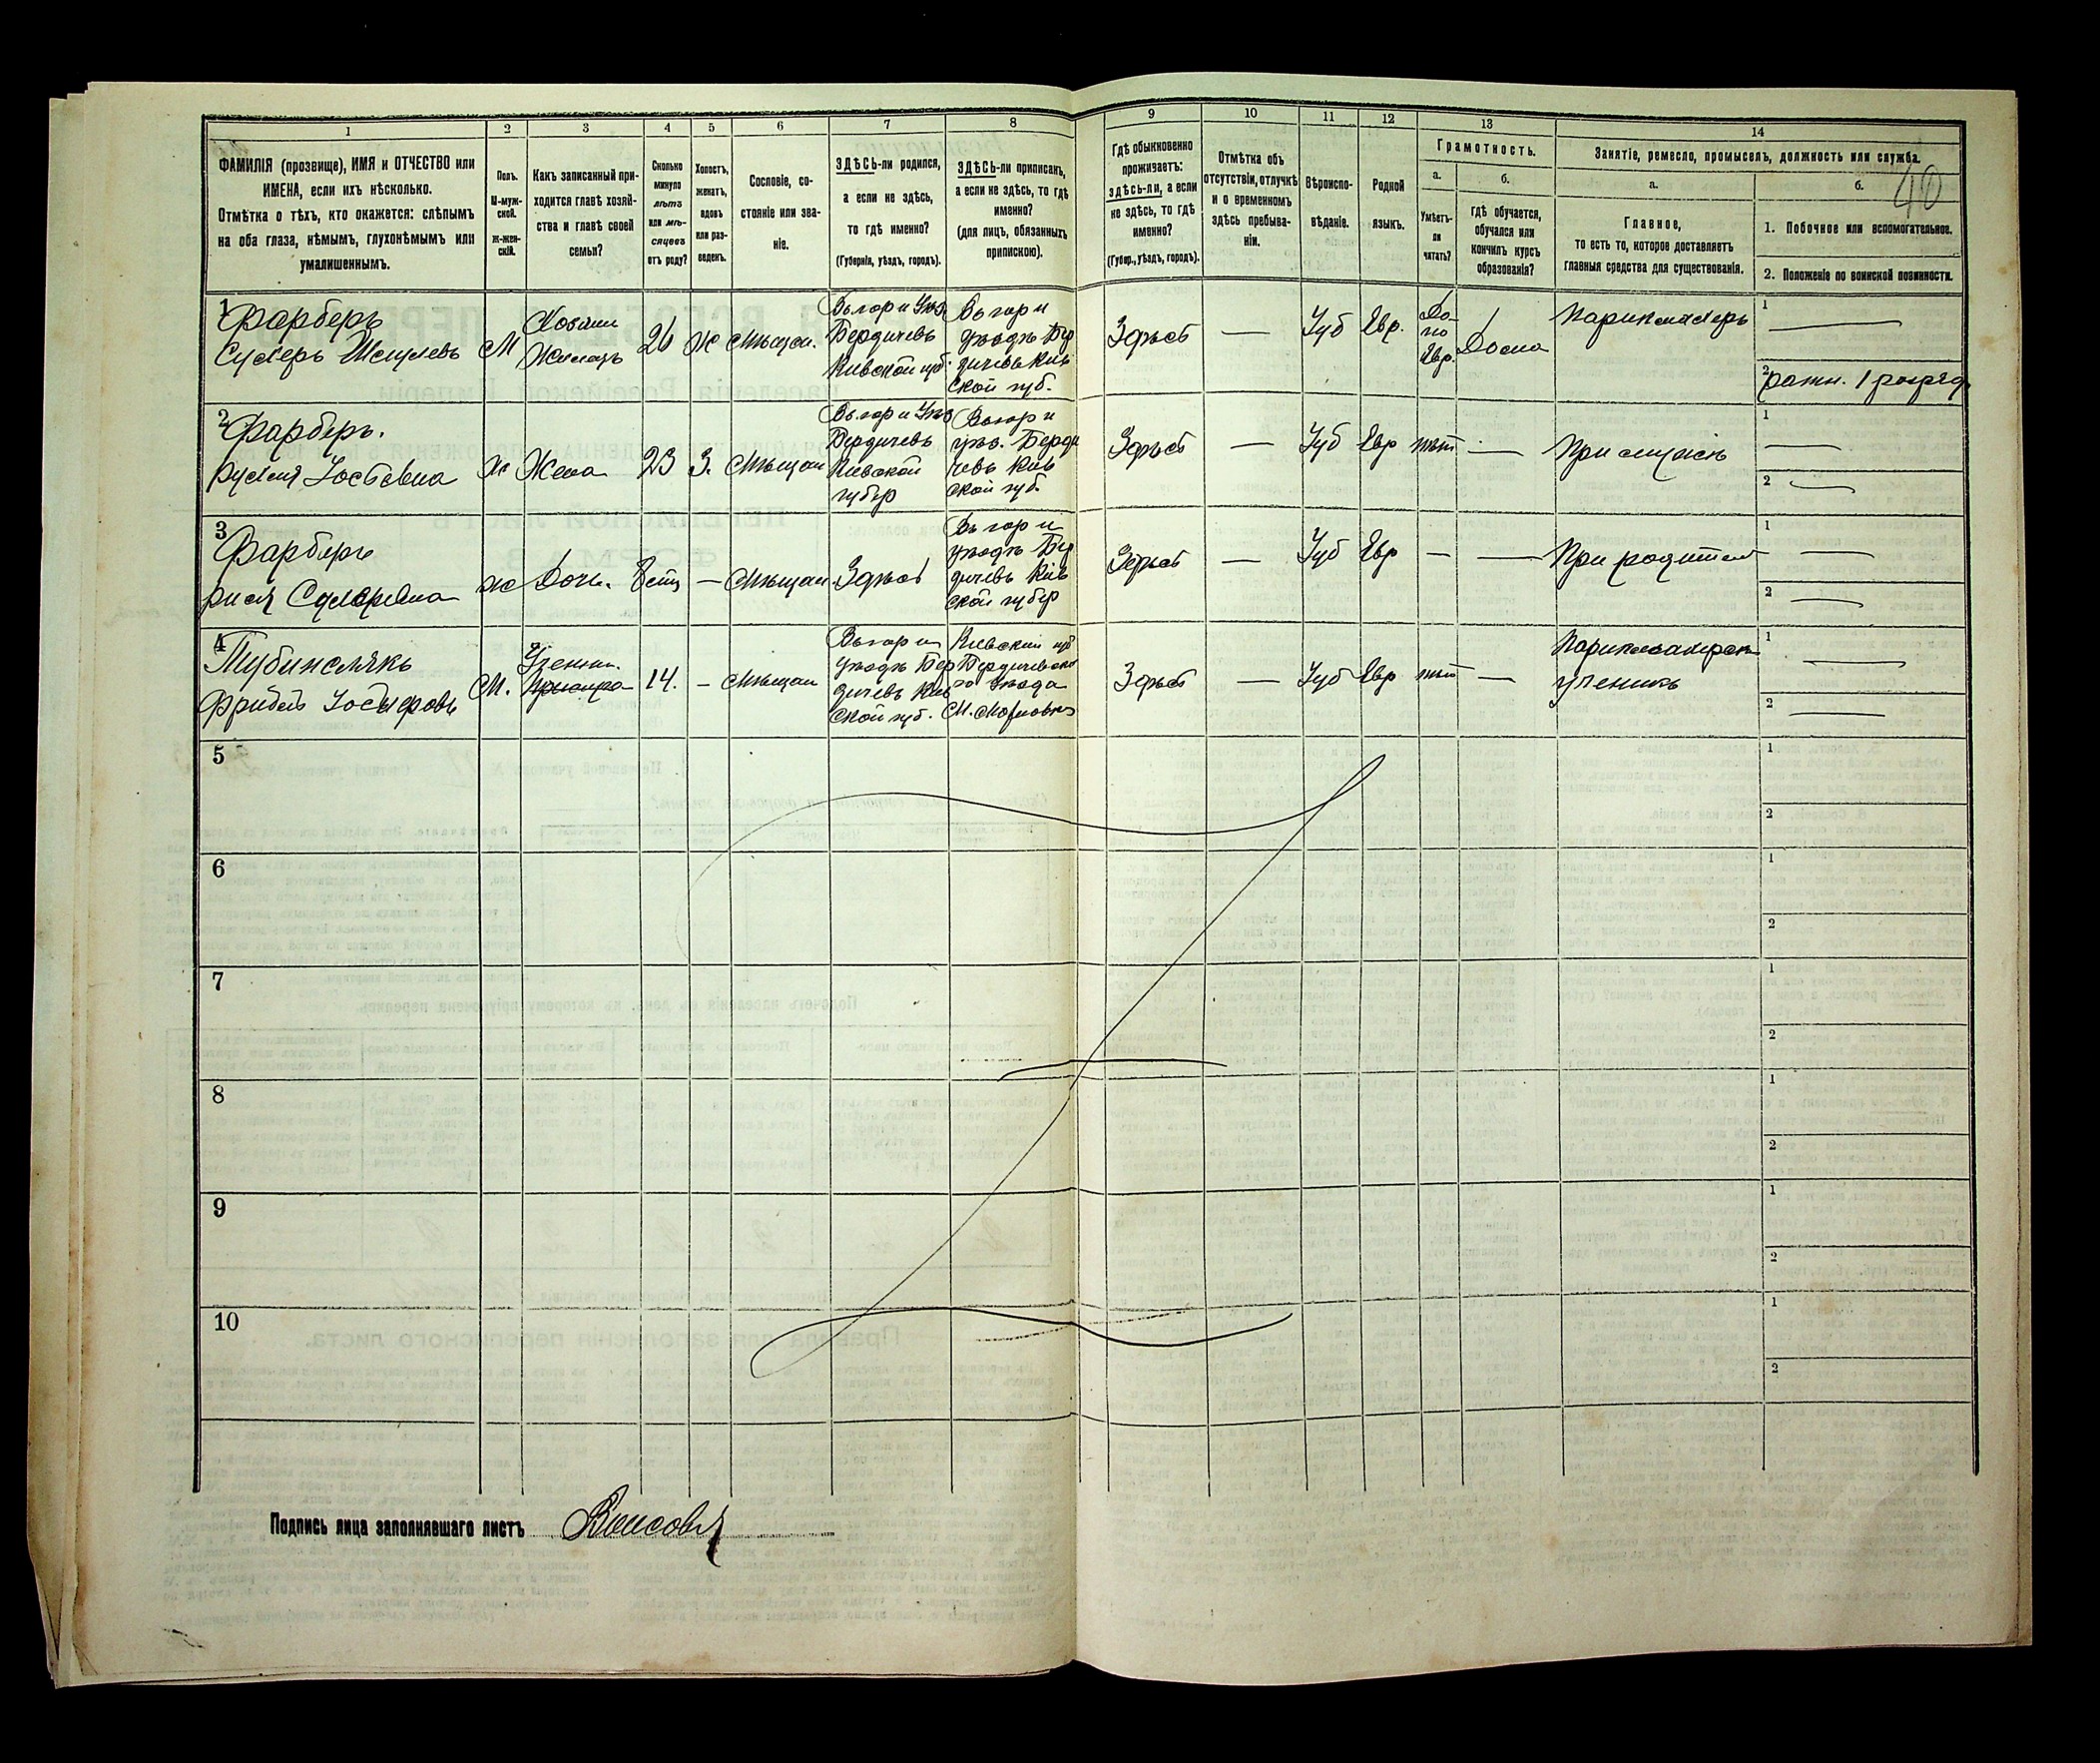 1 2 3 4 5 6 7 8 9 10 11 12 13 14
ФАМИЛІЯ (прозвище), ИМЯ и ОТЧЕСТВО или
ИМЕНА, если ихъ нѣсколько.
Отмѣтка о тѣхъ, кто окажется: слѣпымъ
на оба глаза, нѣмымъ, глухонѣмымъ или
умалишеннымъ.
Полъ.
М-муж-
ской.
Ж-жен-
скій.
Какъ записанный при-
ходится главѣ хозяй-
ства и главѣ своей
семьи?
Сколько
минуло
лѣтъ
или мѣ-
сяцевъ
отъ роду?
Холостъ,
женатъ,
вдовъ
или раз-
веденъ.
Сословіе, со-
стояніе или зва-
ніе.
ЗДѢСЬ-ли родился,
а если не здѣсь,
то гдѣ именно?
(Губернія, уѣздъ, городъ).
ЗДѢСЬ-ли приписанъ,
а если не здѣсь, то гдѣ
именно?
(для лицъ, обязанныхъ
припискою).
Гдѣ обыкновенно
проживаетъ:
здѣсь-ли, а если
не здѣсь, то гдѣ
именно?
(Губер., уѣздъ, городъ).
Отмѣтка объ
отсутствіи, отлучкѣ
и о временномъ
здѣсь пребыва-
ніи.
Вѣроиспо-
вѣданіе.
Родной
языкъ.
Грамотность.
а.
Умѣетъ-
ли
читать?
б.
гдѣ обучается,
обучался или
кончилъ курсъ
образованія?
Занятіе, ремесло, промыселъ, должность или служба.
40
а.
Главное,
то есть то, которое доставляетъ
главныя средства для существованія.
б.
1. Побочное или вспомогательное.
2. Положеніе по воинской повинности.
1
Фарберъ
М
Хозяинъ
26
Ж
мѣщан.
Въ гор и Уѣз
Бердичевъ
Кіевской губ.
Въ гор и
уѣздѣ Бер
дичевъ Кіев
ской губ.
Здѣсь
—
Іуд
Евр.
Да
по
Евр.
Дома
Парикмахеръ
1 —
2 ратн. 1 разряд
2
Фарберъ.
ж
Жена
23
З.
мѣщан
Въ гор и Уѣз
Бердичевъ
Кіевской
губер
Въ гор и
уѣз. Берди
чевъ Кіев
ской губ.
Здѣсь
—
Іуд
Евр
нѣт
—
При мужѣ
1 —
2 —
3
Фарберъ
ж
Дочь.
—
мѣщан
Здѣсь
Въ гор и
уѣздѣ Бер
дичевъ Кіев
ской губер
Здѣсь
—
Іуд
Евр
—
—
При родител
1 —
2 —
4
М.
Ученик.
14.
—
мѣщан
Въ гор и
уѣздѣ Бер
дичевъ Кіев
ской губ.
Кіевской губ
Бердичевска
го уѣзда
Здѣсь
—
Іуд
Евр
нѣт
—
ученикъ
1 —
2 —
5 1
2
6 1
2
7 1
2
8 1
2
9 1
2
10 1
2
Подпись лица заполнявшаго листъ